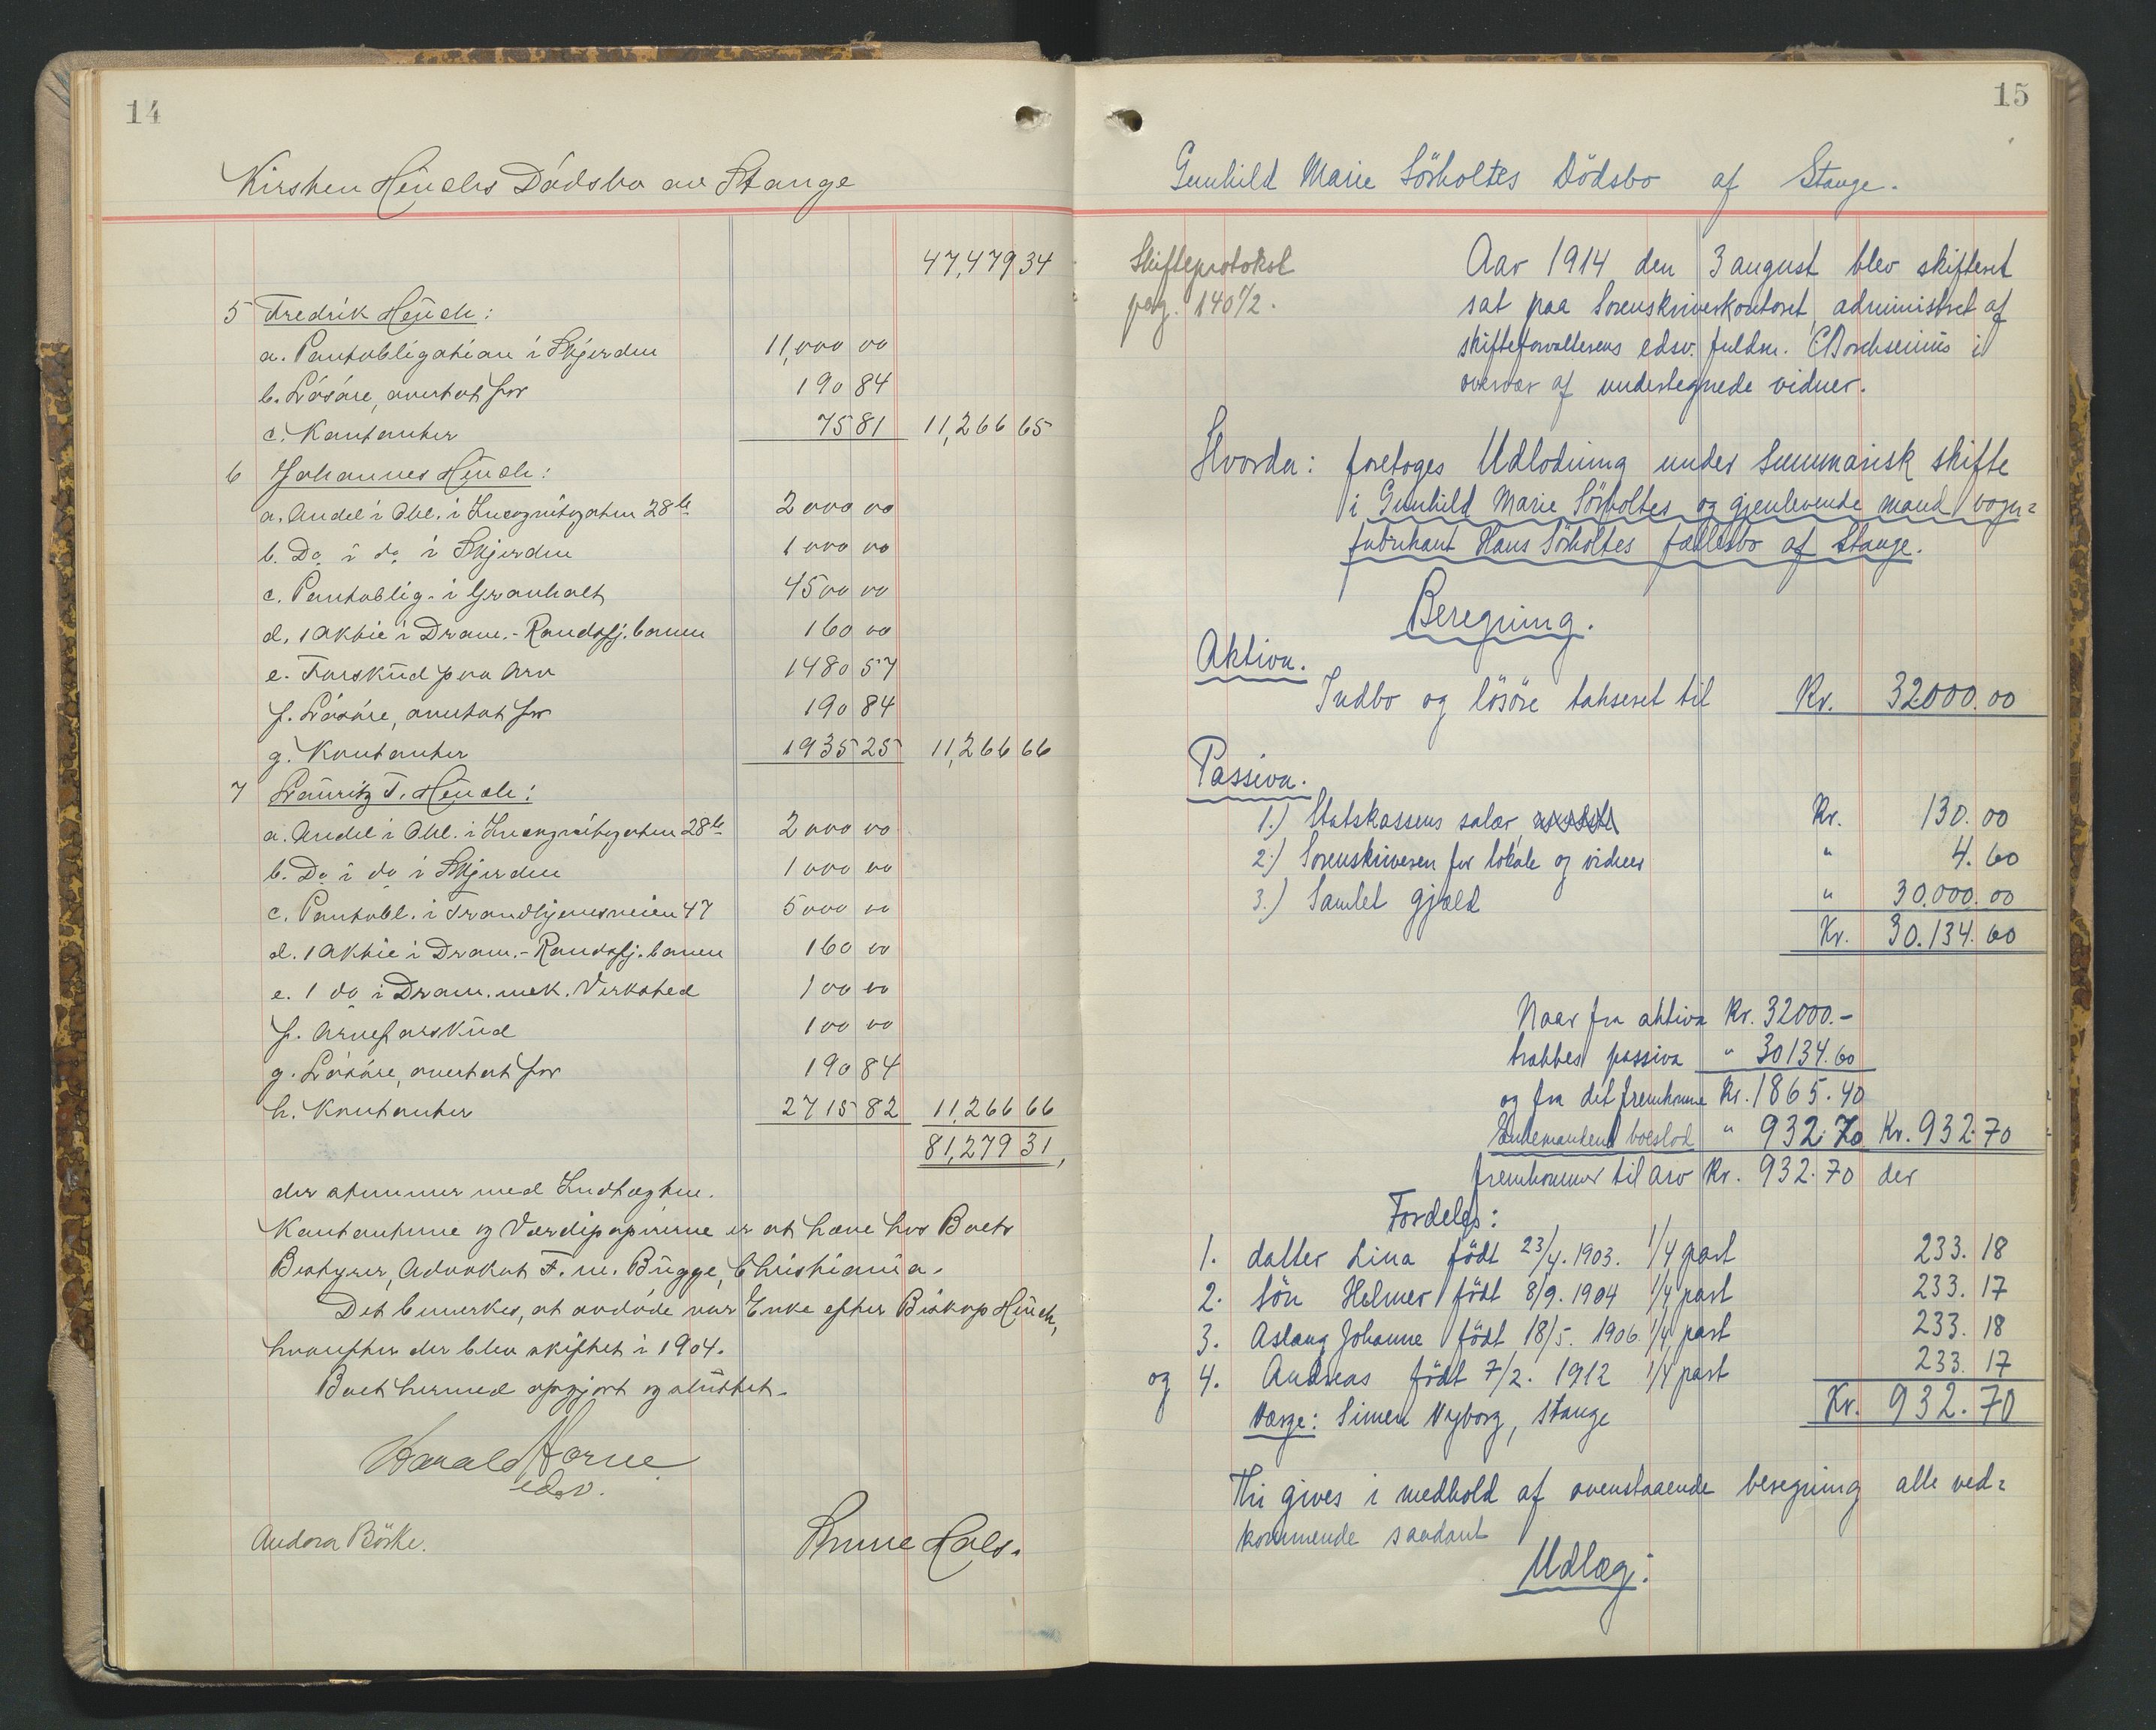 14
Kirsten Heuchs Dödsbo av Stange
47,479 34
5 Fredrik Heuch:
a. Pantobligation i Skjerden 11,000 00
b. Lösöre, overtat for 190 84
c. Kontanter 75 81 11,266 65
6 Johannes Heuch:
a. Andel i Obl. i Incognitogaten 28 b 2000 00
b. Do i do i Skjerden 1000 00
c. Pantoblig. i Granholt 4500 00
d. 1 Aktie i Dram.-Randsfj.banen 160 00
e. Forskud paa Arv 1480 57
f. Lösöre, overtat for 190 84
g. Kontanter 1935 25 11,266 66
7 Lauritz T. Heuch:
a. Andel i Obl. i Incognitogaten 28 b 2000 00
b. Do i do i Skjerden 1000 00
c. Pantobl. i Trondhjemsveien 47 5000 00
d. 1 Aktie i Dram.-Randsfj.banen 160 00
e. 1 do i Dram. mek. Verksted 100 00
f. Arveforskud 100 00
g. Lösöre, overtat for 190 84
h. Kontanter 2715 82 11,266 66
81,279 31,
der stemmer med Indtægten.
Kontanterne og Værdipapirerne er at hæve hos Boets
Bestyrer, Advokat F. M. Bugge, Christiania.
Det bemerkes, at avdöde var Enke efter Biskop Heuch,
hvorefter der blev skiftet i 1904.
Boet hermed opgjort og sluttet.
Harald Horne
edsv.
Andora Börke.
Hals.
15
Gunhild Marie Sörholtes Dödsbo af Stange.
Skifteprotokol
pag. 140 1/2.
Aar 1914 den 3 august blev skifteret
sat paa Sorenskriverkontoret, administret af
skifteforvalterens edsv. fuldm. C Borchsenius i
overvær af undertegnede vidner.
Hvorda: foretoges Udlodning under Summarisk skifte
i Gunhild Marie Sörholtes og gjenlevende mand vogn=
fabrikant Hans Sörholtes fællesbo af Stange.
Beregning.
Aktiva.
Indbo og lösöre takseret til Kr. 32000.00
Passiva.
1.) Statskassens salær Kr. 130.00
2.) Sorenskriveren for lokale og vidner " 4.60
3.) Samlet gjæld " 30.000.00
Kr. 30.134.60
Naar fra aktiva Kr. 32000.-
trækkes passiva " 30134.60
og fra det fremkomne Kr. 1865.40
Enkemandens boeslod " 932.70 Kr. 932.70
fremkommer til arv Kr. 932.70 der
Fordeles:
1. datter Lina födt 23/4. 1903. 1/4 part 233.18
2. sön Helmer födt 8/9. 1904 1/4 part 233.17
3. Aslaug Johanne födt 18/5. 1906. 1/4 part 233.18
og 4. Andreas födt 7/2. 1912 1/4 part 233.17
Værge: Simen Nyborg, Stange Kr. 932.70
Thi gives i medhold af ovenstaaende beregning alle ved=
kommende saadant
Udlæg: